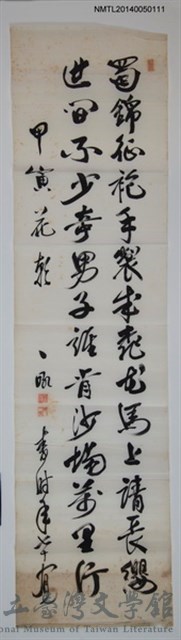 NMTL20140050111
蜀錦征袍手製成桃花馬上請長纓
世間不少奇男子誰肯沙場萬里行
甲寅花朝
書時年七十有
立臺灣文學館
onal Museum of Taiwan Literature